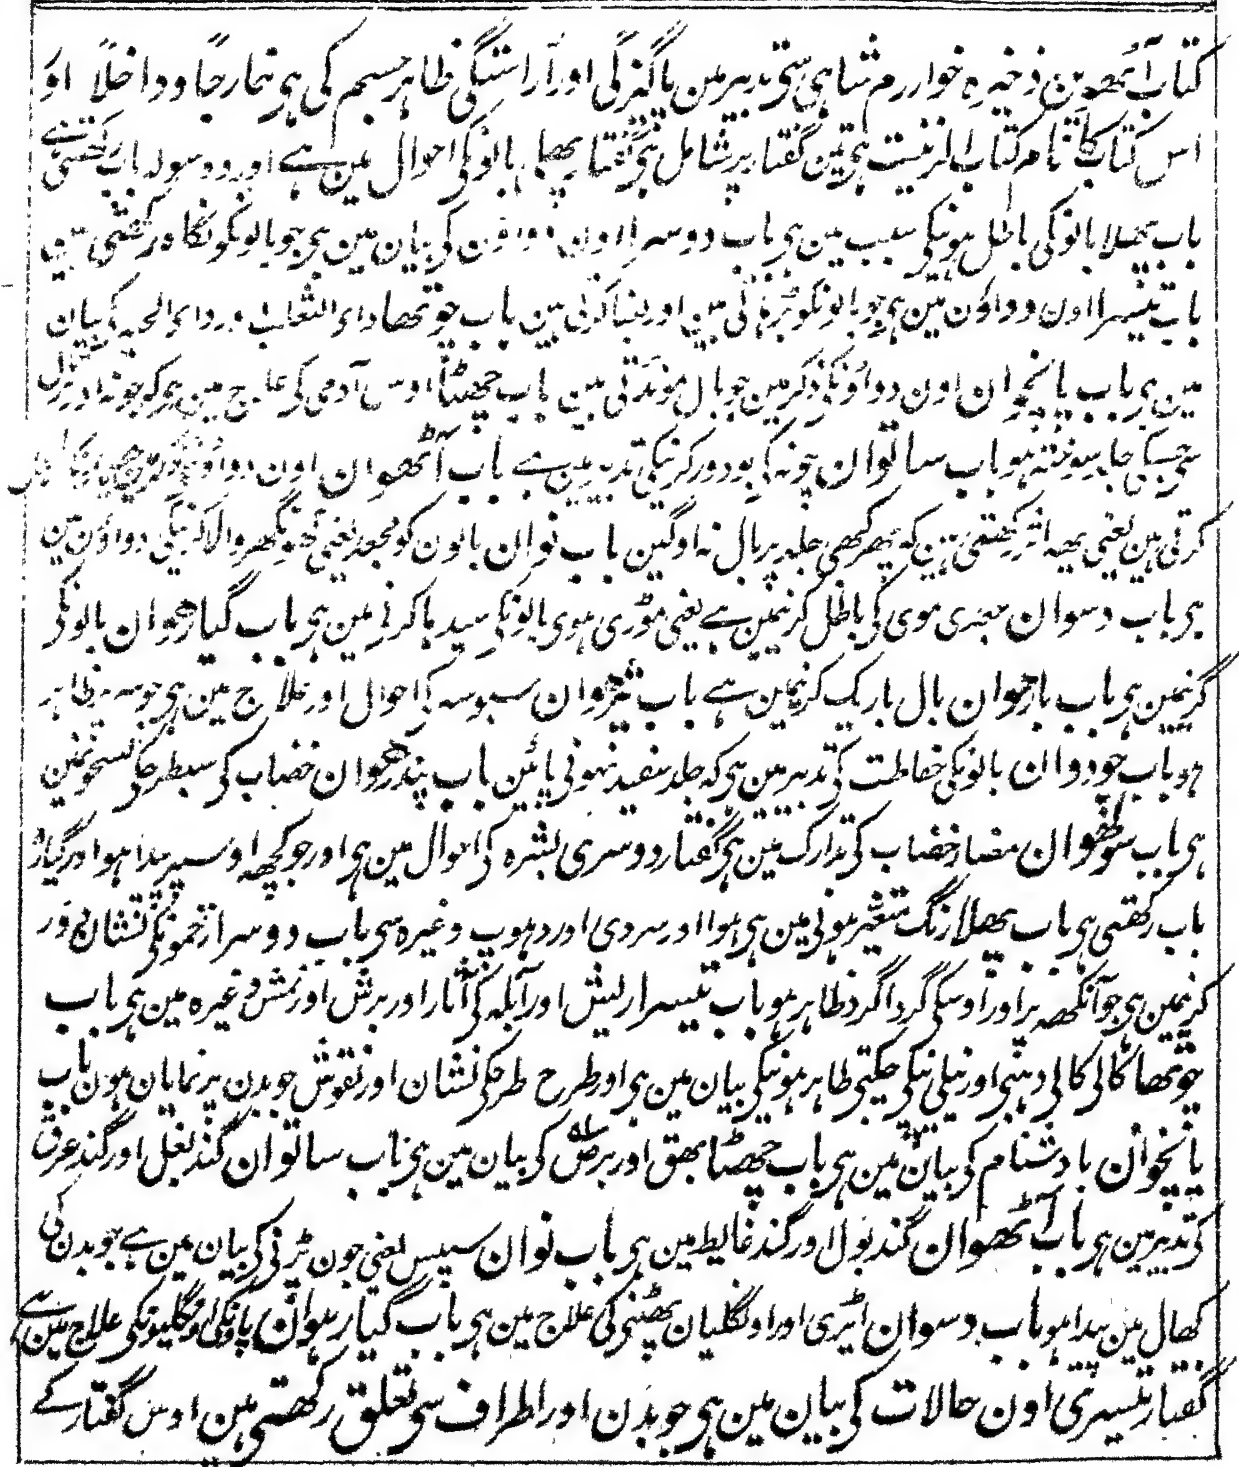 کتاب آٹھوین ذخیرہ خوارزم شاہی سی تدبیر مین پاکیزگی اور آراستگی ظاہر جسم کی ہی خارجاً و داخلاً اور
اس کتاب کا نام کتاب الزینت ہی تین گفتار پر شامل ہی گفتار پھلا بالونکی احوال مین ہے اور وہ سولہ باب رکھتی ہے
باب پھلا بالونکی باطل ہونیکی سبب مین ہی باب دوسرا اون دواؤن کی بیان مین ہی جو بالونکو نگاہ رکھتی ہین
باب تیسرا اون دواؤن مین ہی جو بالونکو بڑہاتی ہین اور لنبا کرتی ہین باب چوتھا داء الثعلب اور داء الحیہ کی بیان
مین ہی باب پانچوان اون دواؤنکی ذکر مین جو بال مونڈتی ہین باب چھٹا اوس آدمی کی علاج مین ہی کہ چونہ اور ہڑتال
سی جسکی جلد سوختہ ہو باب ساتوان چونہ کی بو دور کرنیکی تدبیر مین ہے باب آٹھوان اون دواؤنکی
کرتی ہین یعنی یھہ اثر رکھتی ہین کہ پھر کبھی جلد پر بال نہ اوگین باب نوان بالون کو مجعد یعنی گھونگھروالا کرنیکی دواؤن مین
ہی باب دسوان جعدی موی کی باطل کرنیمین ہے یعنی موڑی ہوی بالونکی سیدہا کرنی مین ہی باب گیارھوان بالونکی
کرنیمین ہی باب بارھوان بال باریک کرنیمین ہے باب تیرھوان سبوسہ کی احوال اور علاج مین ہی جو سر پر ظاہر
ہو باب چودوان بالونکی حفاظت کی تدبیر مین ہی کہ جلد سفید نہونی پائین باب پندرھوان خضاب کی سبطرحکی نسخونمین
ہی باب سولھوان مضار خضاب کی تدارک مین ہی گفتار دوسری بشرہ کی احوال مین ہی اور جو کچھہ اوسپر پیدا ہو اور گیارہ
باب رکھتی ہی باب پھلا رنگ متغیر ہونی مین ہی ہوا اور سردی اور دہوپ وغیرہ سی باب دوسرا زخمونکی نشان دور
کرنیمین ہی جو آنکھہ پر اور اوسکی گرداگرد ظاہر ہو باب تیسرا ریش اور آبلہ کی آثار اور برش اور نمش وغیرہ مین ہی باب
چوتھا کالی کالی دہبی اور نیلی نیلی چکتی ظاہر ہونیکی بیان مین ہی اور طرح طرحکی نشان اور نقوش جو بدن پر نمایان ہون باب
پانچوان بادشنام کی بیان مین ہی باب چھٹا بھق اور برص کی بیان مین ہی باب ساتوان گند بغل اور گند عرق
کی تدبیر مین ہی باب آٹھوان گند بول اور گند غایط مین ہی باب نوان سیس یعنی جون پڑنی کی بیان مین ہے جو بدن کی
کھال مین پیدا ہو باب دسوان ایڑی اور اونگلیان پھٹنی کی علاج مین ہی باب گیارہوان پاونکی اونگلیونکی علاج مین ہے
گفتار تیسری اون حالات کی بیان مین ہی جو بدن اور اطراف سی تعلق رکھتی ہین اوس گفتار کے